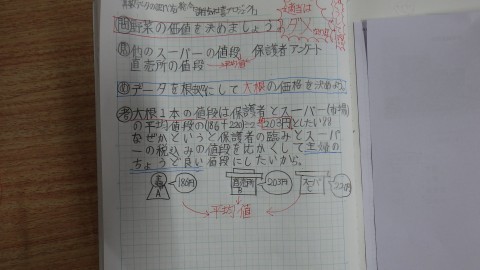 問 野菜の価値を決めましょう
他のスーパーの値段 保護者アンケート
直売所の値段
データを根拠にして大根の価格を決めよう
考 大根1本の値段は保護者とスーパー(市場)
の平均値段の(186+220)÷2=203円としたいです
なぜかというと保護者の臨みとスーパ
ーの税込みの値段を比かくして主婦の
ちょうど良い値段にしたいから。
A 186円 直売所 B 203円 スーパー C 220円
平均値